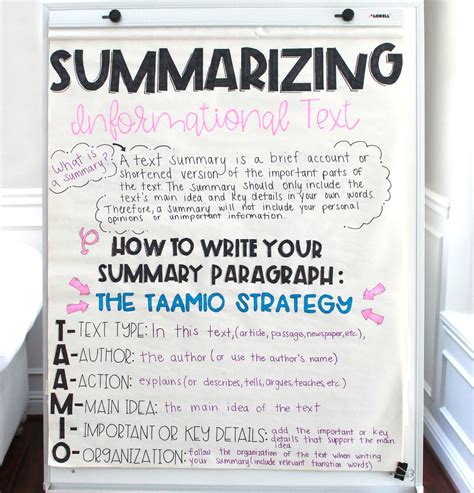 LORELL
SUMMARIZING
Informational Text
What is
a summary?
A text summary is a brief account or
shortened version of the important parts of
the text. The summary should only include the
text's main idea and key details in your own words.
Therefore, a summary will not include your personal
opinions or unimportant information.
HOW TO WRITE YOUR
SUMMARY PARAGRAPH:
THE TAAMIO STRATEGY
T-TEXT TYPE: In this text, (article, passage, newspaper, etc.)
A-AUTHOR: the author (or use the author's name)
A-ACTION: explains (or describes, tells, argues, teaches, etc.)
M-MAIN IDEA: the main idea of the text
I-IMPORTANT OR KEY DETAILS: add the important or key
details that support the main
idea
O-ORGANIZATION: follow the organization of the text when writing
your summary (include relevant transition words)